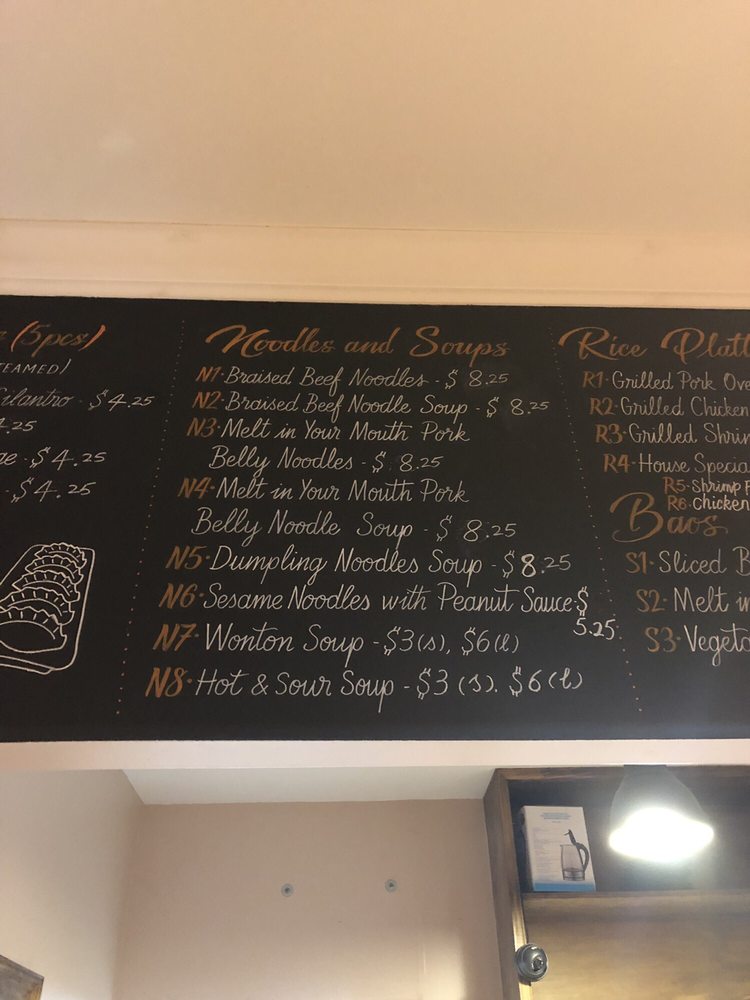 (5pcs)
STEAMED)
Cilantro - $4.25
4.25
$4.25
- $4.25
Noodles and Soups
N1- Braised Beef Noodles - $8.25
N2- Braised Beef Noodle Soup - $8.25
N3- Melt in Your Mouth Pork
Belly Noodles - $8.25
N4- Melt in Your Mouth Pork
Belly Noodle Soup - $8.25
N5- Dumpling Noodles Soup - $8.25
N6- Sesame Noodles with Peanut Sauce $
5.25
N7- Wonton Soup - $3(s), $6(l)
N8- Hot & Sour Soup - $3(s). $6(l)
Rice Platt
R1- Grilled Pork Ove
R2- Grilled Chicken
R3- Grilled Shrim
R4- House Specia
R5- Shrimp F
R6- Chicken
Baos
S1- Sliced B
S2- Melt in
S3- Vegeta